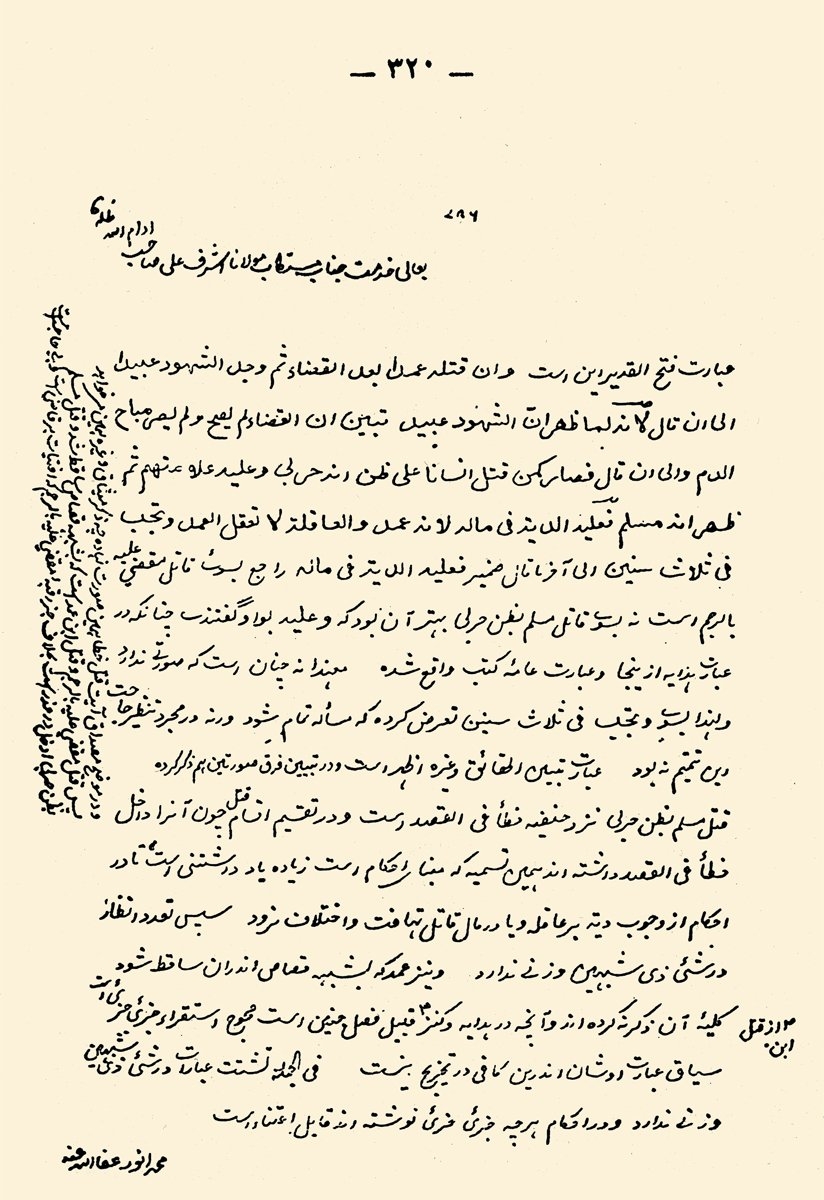 — ۳۲۰ —
۷۸۶
بعالی خدمت جناب مستطاب مولانا اشرف علی صاحب ادام الله ظله
عبارت فتح القدیر این است وان قتله عمدا بعد القضاء ثم وجد الشهود عبیدا
الی ان قال لانه لما ظهر ان الشهود عبید تبین ان القضاء لم یصح ولم یصر مباح
الدم والی ان قال فصار کمن قتل انسانا علی ظن انه حربی وعلیه علامتهم ثم
ظهر انه مسلم فعلیه الدیة فی ماله لانه عمد والعاقلة لا تعقل العمد وتجب
فی ثلاث سنین الی آخر ما قال ضمیر فعلیه الدیة فی ماله راجع بسوئے قاتل مقضی علیه
بالرجم است نه بسوئے قاتل مسلم بظن حربی بهتر آن بود که وعلیه بواو گفتندے چنانکه در
عبارت هدایه از ینجا وعبارت عامۀ کتب واقع شده معهذا نه چنان است که صورتے ندارد
ولهذا بسوئے وتجب فی ثلاث سنین تعرض کرده که مسأله تمام شود ورنه در مجرد تنظیر حاجت
این تتمیم نه بود عبارت تبیین الحقائق وغیره اظهر است ودر تبیین فرق صورتین هم ذکر کرده
قتل مسلم بظن حربی نزد حنفیه خطأ فی القصد است ودر تقسیم اقسام قتل چون آنرا داخل
خطأ فی القصد داشته اند همین تسمیه که مبنائے احکام است زیاده یاد داشتنی است تا در
احکام از وجوب دیة بر عاقله ویا در مال قاتل تهافت واختلاف نرود سپس تعدد انظار
در شئ ذی شبهین وزنے ندارد ونیز عمد که بشبهه قصاص اندران ساقط شود
کلیۀ آن ذکر نه کرده اند وآنچه در هدایه وکنز قبیل فصل جنین است محوج استقراء جزئی جزئی است
سیاق عبارت اوشان اندرین کافی در تخریج نیست فی الجملة تشتت عبارات در شئ ذی شبهین
وزنے ندارد ودر احکام هرچه جزئی جزئی نوشته اند قابل اعتناء است
محمد انور عفا الله عنه